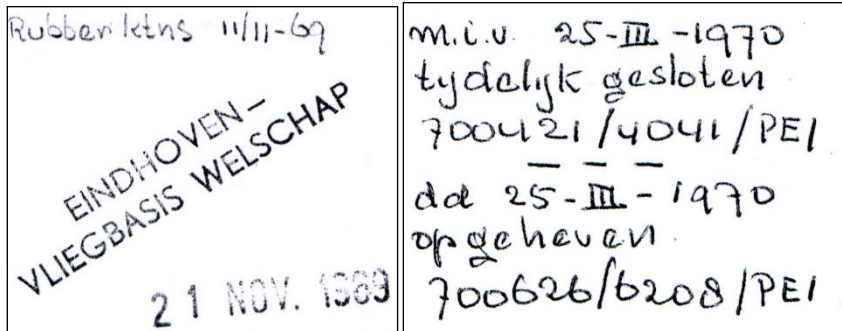 Rubber ktns 11/11-69
EINDHOVEN-
VLIEGBASIS WELSCHAP
21 NOV. 1969
m.i.v. 25-III-1970
tydelyk gesloten
700421/4041/PEI
— — —
dd 25-III-1970
opgeheven
700626/6208/PEI